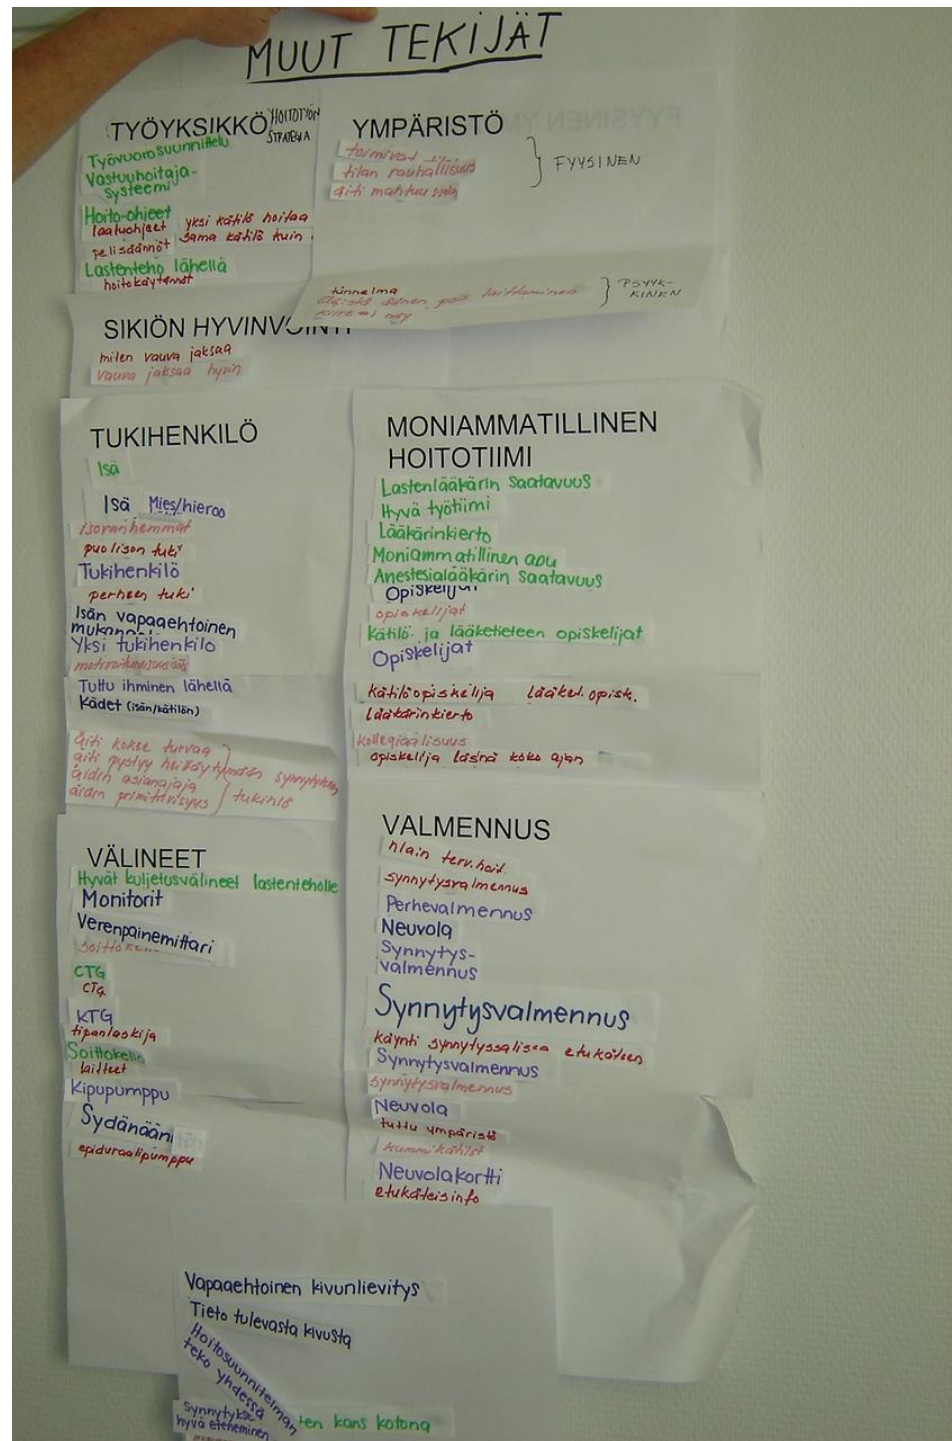 MUUT TEKIJÄT
TYÖYKSIKKÖ
HOITOTYÖN
STRATEGIA
Työvuorosuunnittelu
Vastuuhoitaja-
systeemi
Hoito-ohjeet
laatuohjeet
pelisäännöt
yksi kätilö hoitaa
sama kätilö kuin
Lastenteho lähellä
hoitokäytännöt
YMPÄRISTÖ
toimivat
tilan rauhallisuus
äiti mahtuu
FYYSINEN
tunnelma
pois laittaminen
kiire ei näy
PSYYK-
KINEN
SIKIÖN HYVINVOINTI
miten vauva jaksaa
vauva jaksaa hyvin
TUKIHENKILÖ
Isä
Isä Mies/hieroo
isovanhemmat
puolison tuki
Tukihenkilö
perheen tuki
Isän vapaaehtoinen
Yksi tukihenkilö
Tuttu ihminen lähellä
Kädet (isän/kätilön)
äiti kokee turvaa
äiti pystyy
äidin asianajaja
äidin primitiivisyys
MONIAMMATILLINEN
HOITOTIIMI
Lastenlääkärin saatavuus
Hyvä työtiimi
Lääkärinkierto
Moniammatillinen apu
Anestesialääkärin saatavuus
Opiskelijat
opiskelijat
Kätilö- ja lääketieteen opiskelijat
Opiskelijat
kätilöopiskelija lääket. opisk.
lääkärinkierto
kollegiaalisuus
opiskelija läsnä koko ajan
VÄLINEET
Hyvät kuljetusvälineet lastenteholle
Monitorit
Verenpainemittari
CTG
CTG
KTG
tipanlaskija
Soittokello
laitteet
Kipupumppu
Sydänääni
epiduraalipumppu
VALMENNUS
terv.hoit.
synnytysvalmennus
Perhevalmennus
Neuvola
Synnytys-
valmennus
Synnytysvalmennus
käynti synnytyssalissa etukäteen
Synnytysvalmennus
synnytysvalmennus
Neuvola
tuttu ympäristö
kummikätilöt
Neuvolakortti
etukäteisinfo
Vapaaehtoinen kivunlievitys
Tieto tulevasta kivusta
Hoitosuunnitelman
teko yhdessä
hyvä eteneminen
kans kotona